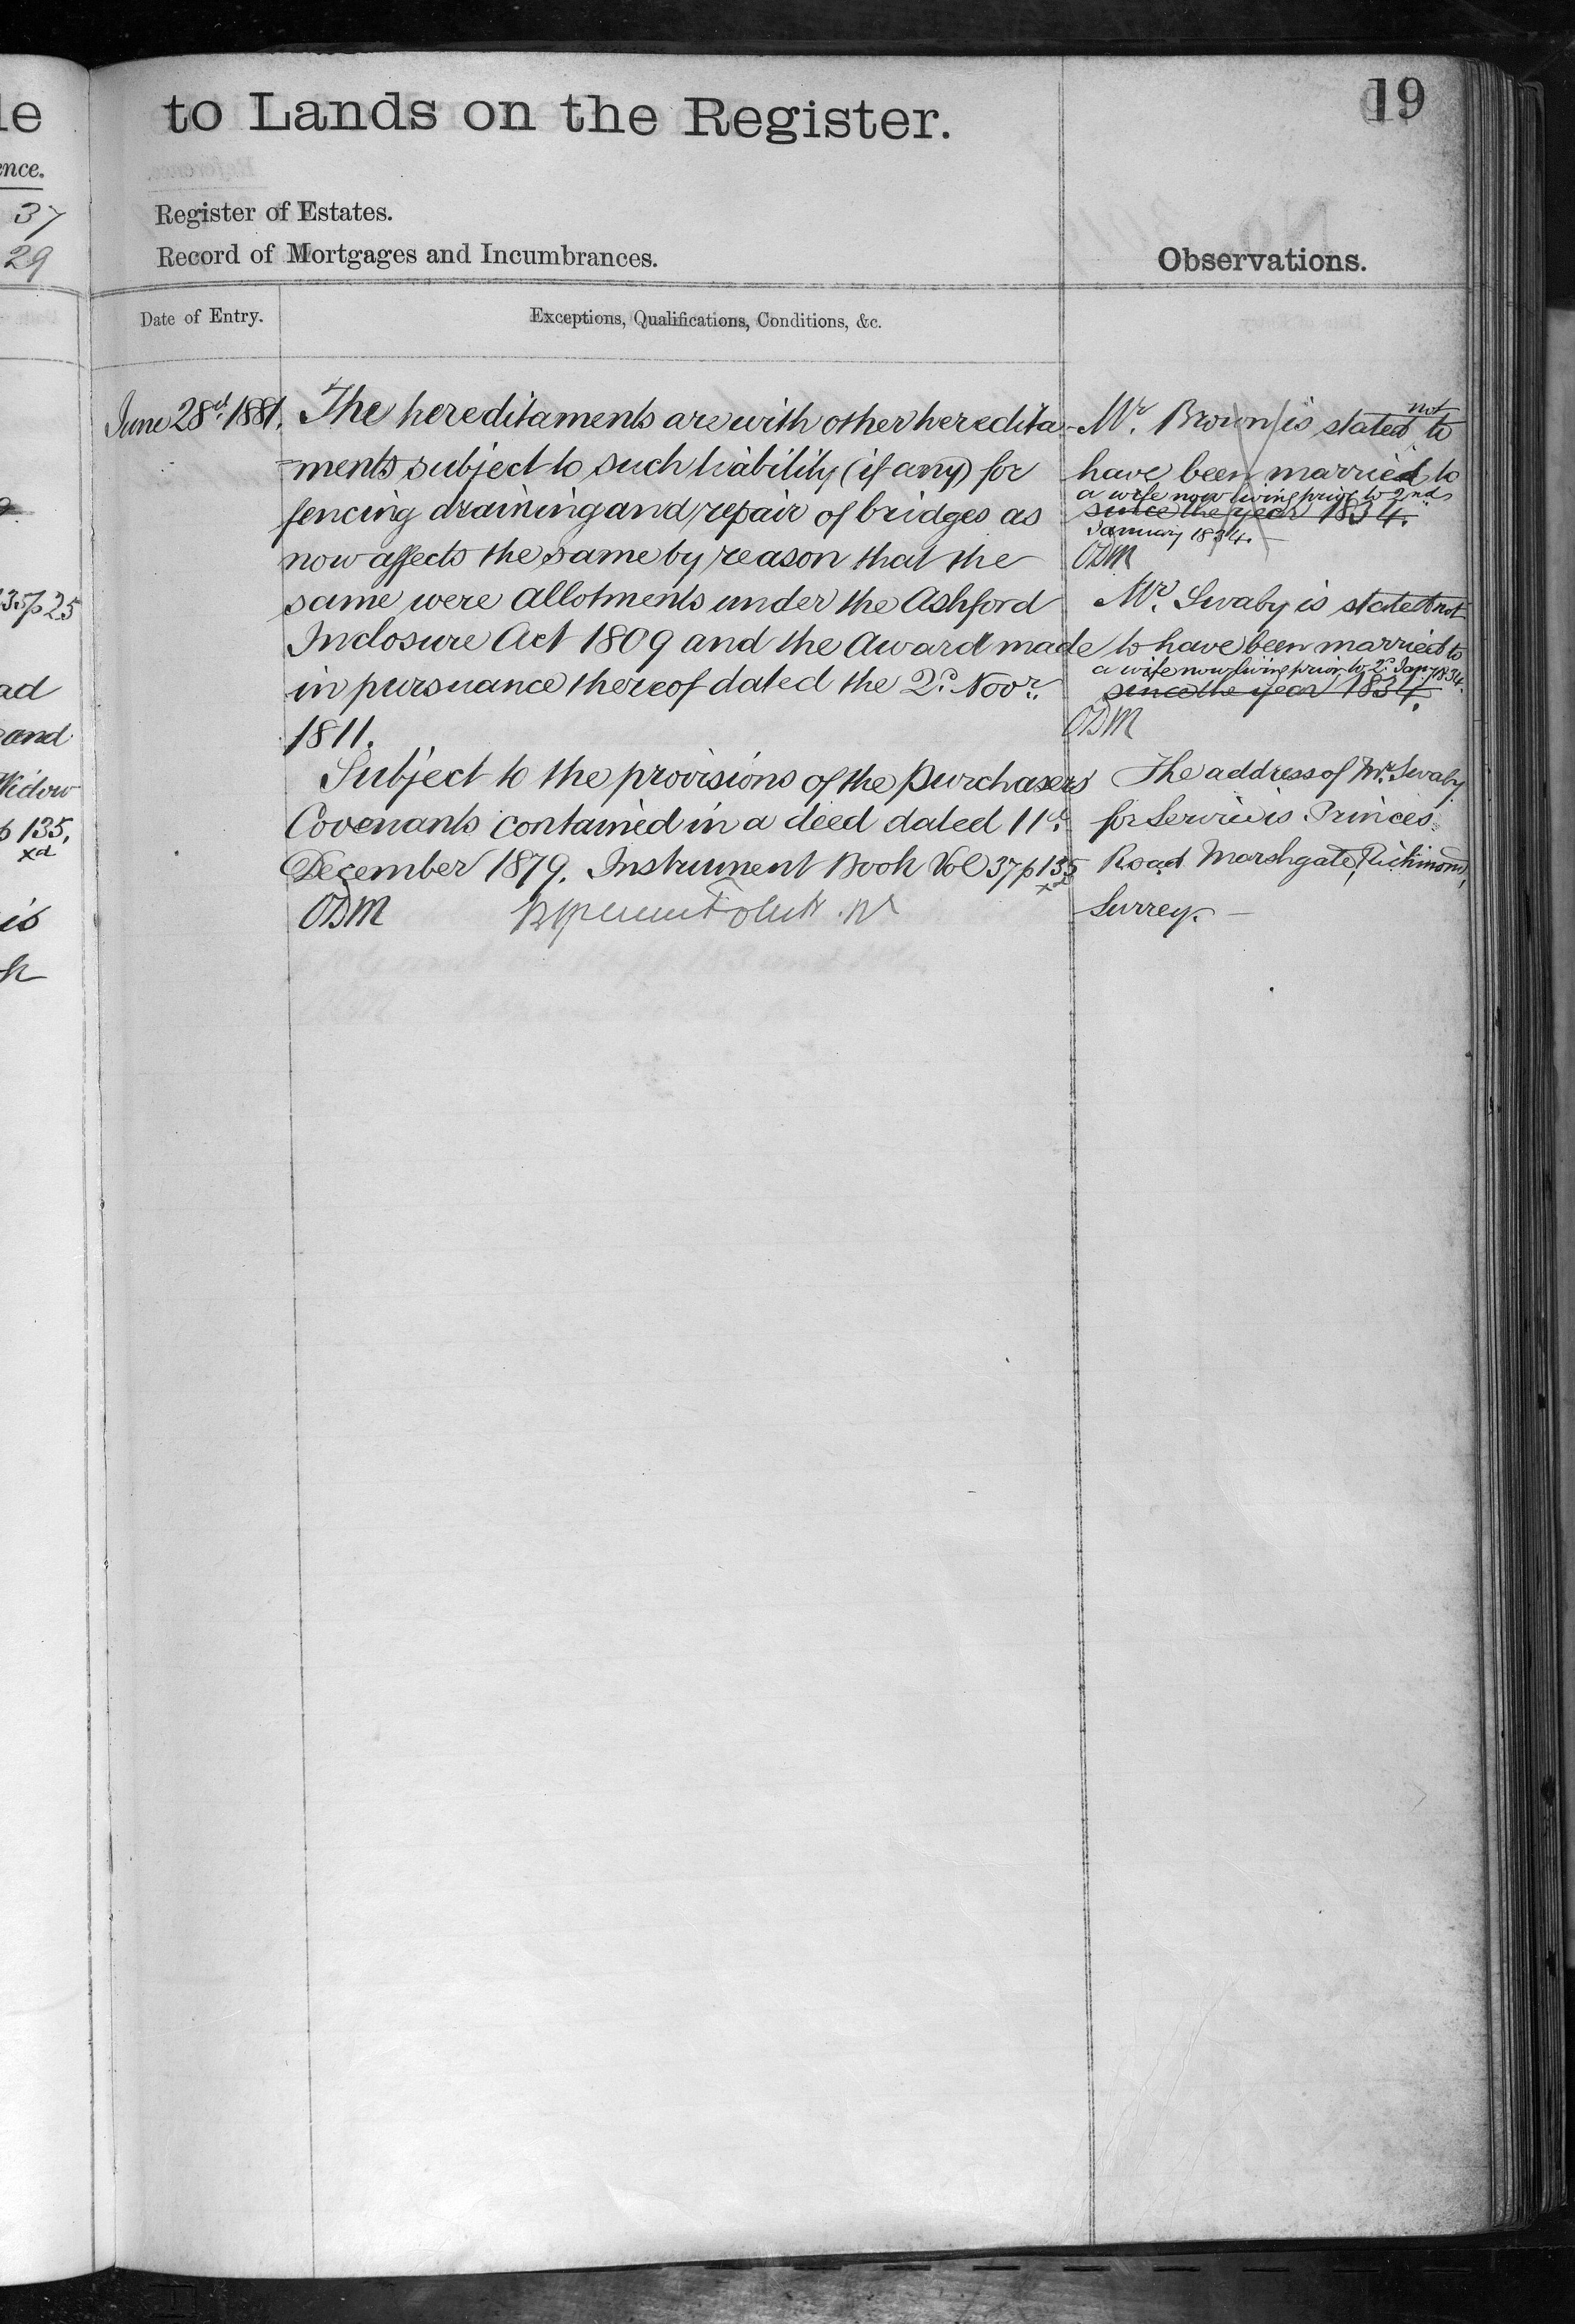 le
ence.
37
29
35/p 25
ad
and
Widow
p 135,
xd
is
h
to Lands on the Register.
19
Register of Estates.
Record of Mortgages and Incumbrances.
Observations.
Date of Entry.
Exceptions, Qualifications, Conditions, &c.
June 28th 1881.
The hereditaments are with other heredita-
ments subject to such liability (if any) for
fencing draining and repair of bridges as
now affects the same by reason that the
same were allotments under the Ashford
Inclosure Act 1809 and the Award made
in pursuance thereof dated the 2d. Novr.
1811.
Subject to the provisions of the purchasers
Covenants contained in a deed dated 11th.
December 1879. Instrument Book Vol 37 p 135
xd
ODM
Mr. Brown is stated not to
have been married to
a wife now living prior to 2nd
since the year 1834.
January 1834.
ODM
Mr. Swaby is stated not
to have been married to
a wife now living prior to 2d. Jany. 1834.
since the year 1834.
ODM
The address of Mr. Swaby
for Service is Princes
Road Marshgate, Richmond,
Surrey.